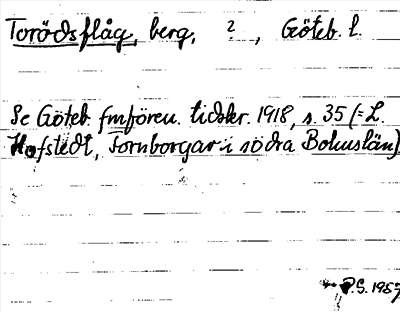 Torödsflåg, berg, ?, Göteb. l.
Se Göteb. fmfören. tidskr. 1918, s. 35 (= L.
Hofstedt, Fornborgar i södra Bohuslän)
P.S. 1957